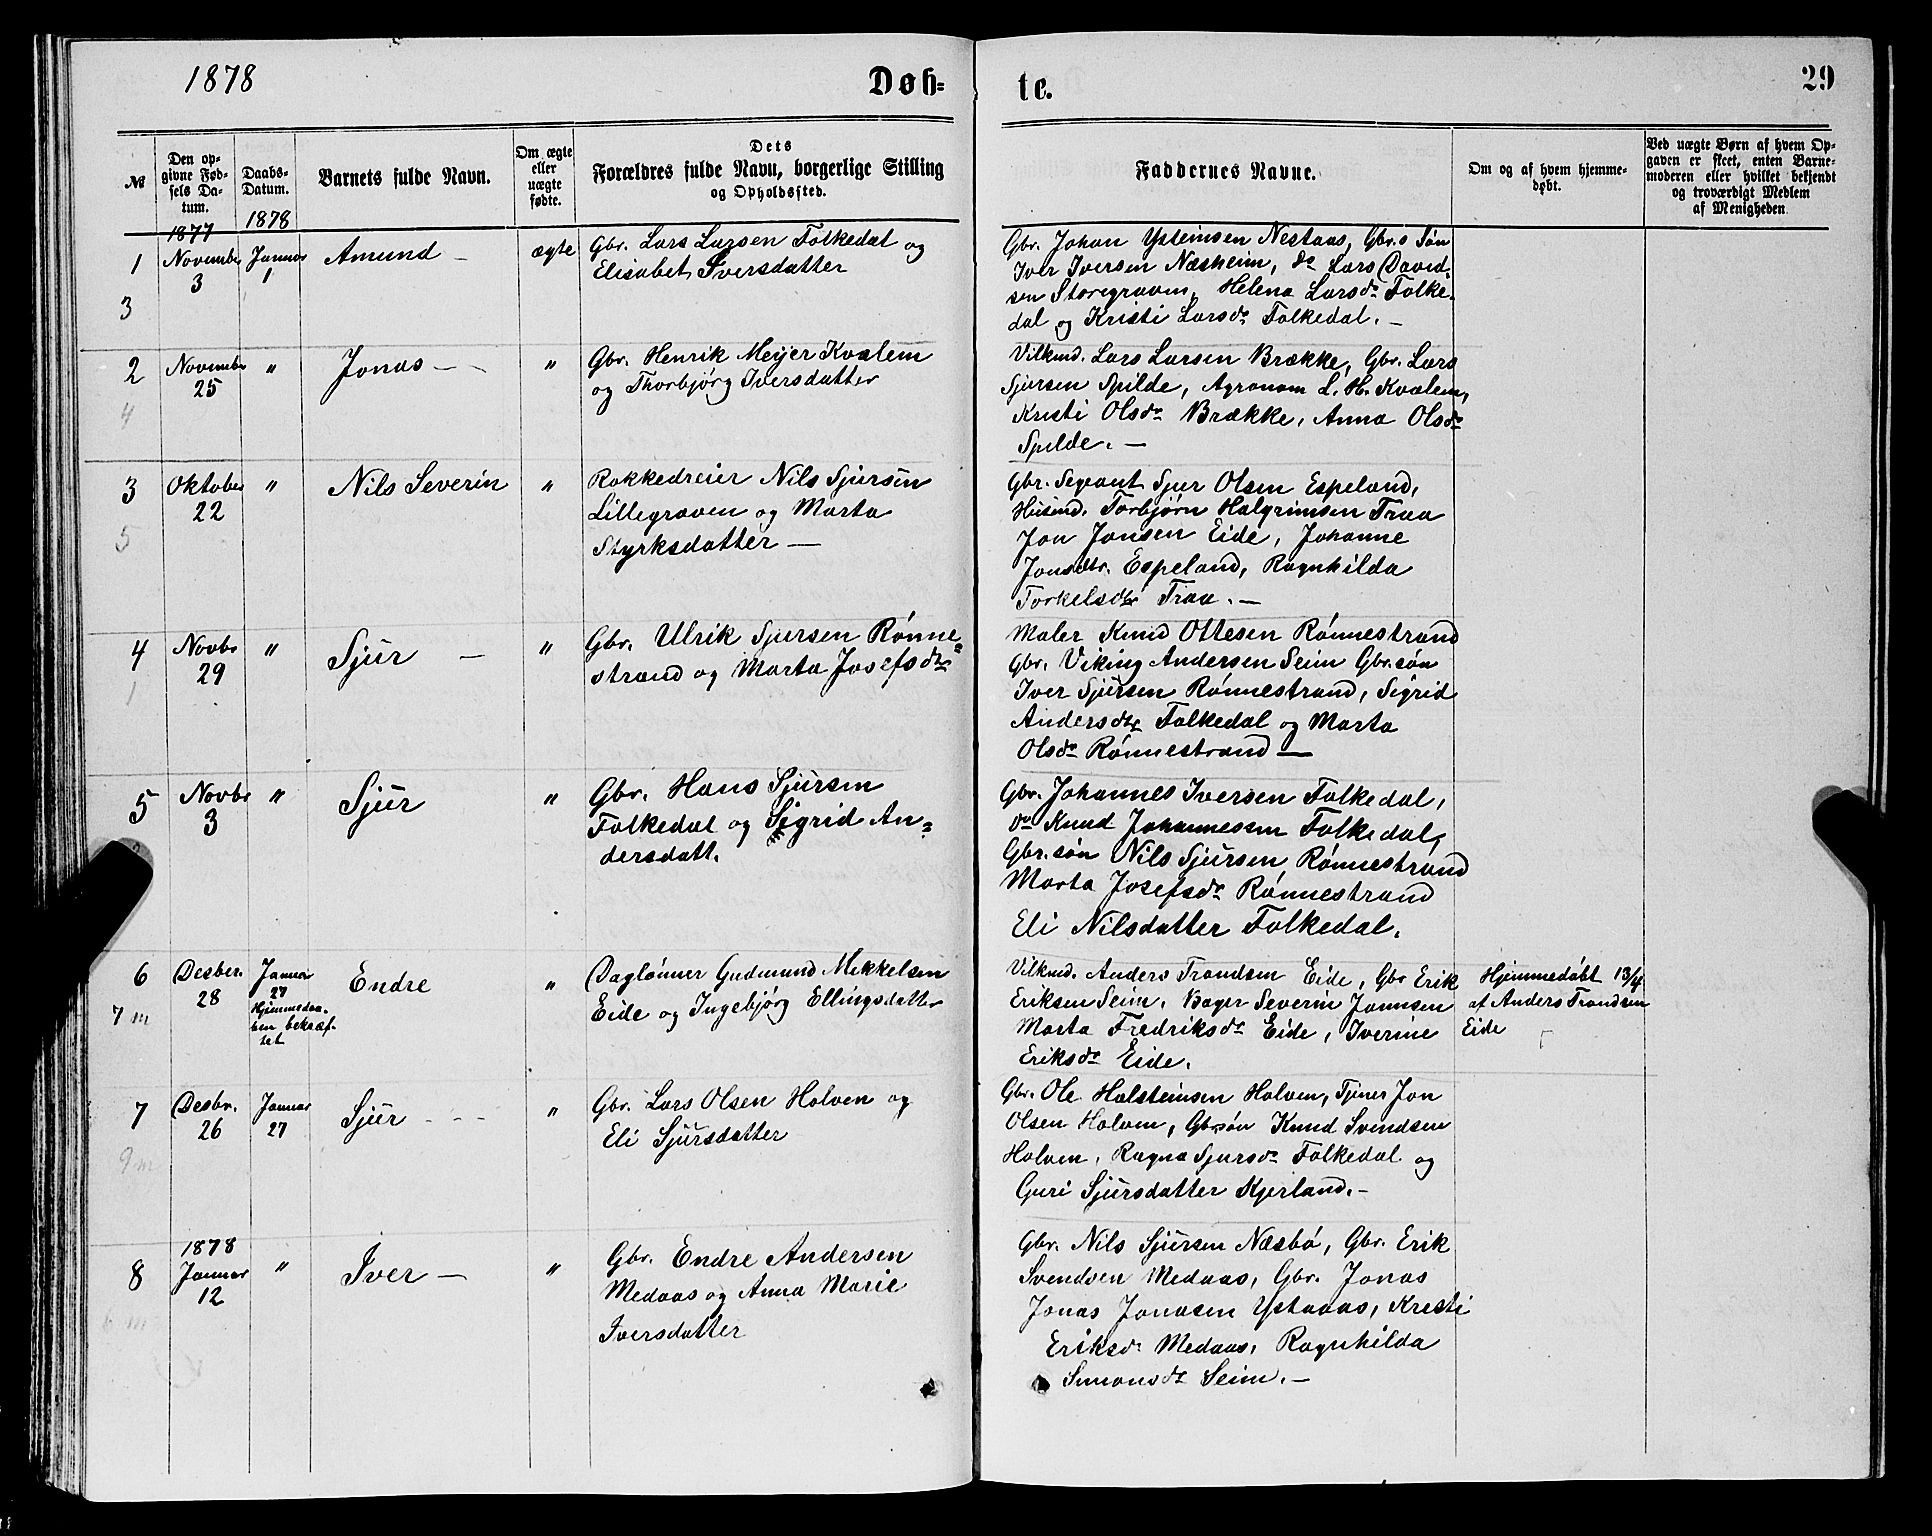 1878
Døb=
te.
29
№
Den op-
givne Fød-
sels Da-
tum.
1877
Daabs-
Datum.
1878
Barnets fulde Navn.
Om ægte
eller
uægte
fødte.
Dets
Forældres fulde Navn, borgerlige Stilling
og Opholdssted.
Faddernes Navne.
Om og af hvem hjemme-
døbt.
Ved uægte Børn af hvem Op-
gaven er skeet, enten Barne-
moderen eller hvilket bekjendt
og troværdigt Medlem
af Menigheden.
1
3
November
3
Januar
1
Amund –
ægte
Gbr. Lars Larsen Folkedal og
Elisabet Iversdatter
Gbr. Johan Ysteinsen Nestaas, Gbr.s Søn
Iver Iversen Næsheim, do Lars David-
sen Storegraven, Helena Larsdr Folke-
dal og Kristi Larsdr Folkedal. –
2
4
November
25
"
Jonas – –
"
Gbr. Henrik Meyer Kvalem
og Thorbjörg Iversdatter
Vilkmd. Lars Larsen Brække, Gbr. Lars
Sjursen Spilde, Agronom L. H. Kvalem,
Kristi Olsdr Brække, Anna Olsdr
Spilde. –
3
5
Oktober
22
"
Nils Severin
"
Rokkedreier Nils Sjursen
Lillegraven og Marta
Styrksdatter –
Gbr. Segeant Sjur Olsen Espeland,
Husmd. Torbjørn Halgrimsen Traa
Jon Jonsen Eide, Johanne
Jonsdtr. Espeland, Ragnhilda
Torkelsdtr Traa. –
4
1
Novbr
29
"
Sjur –
"
Gbr. Ulrik Sjursen Rønne=
strand og Marta Josefsdr
Maler Knud Ottesen Rønnestrand
Gbr. Viking Andersen Seim Gbr.søn
Iver Sjursen Rønnestrand, Sigrid
Andersdtr Folkedal og Marta
Olsdr Rønnestrand –
5
Novbr
3
"
Sjur
"
Gbr. Hans Sjursen
Folkedal og Sigrid An=
dersdatt.
Gbr. Johannes Iversen Folkedal,
do Knud Johannessen Folkedal,
Gbr.søn Nils Sjursen Rønnestrand
Marta Josefsdr Rønnestrand
Eli Nilsdatter Folkedal.
6
7 m
Desber.
28
Januar
27
Hjemmedaa-
ben bekræf-
tet
Endre
"
Daglønner Gudmund Mikkelsen
Eide og Ingebjørg Ellingsdatter
Vilkmd. Anders Trondsen Eide, Gbr Erik
Eriksen Seim, Bager Severin Jonnsen
Marta Fredriksdr Eide, Iverine
Eriksdr Eide.
Hjemmedøbt 13/4
af Anders Trondsen
Eide
7
9 m
Desbr.
26
Januar
27
Sjur – –
"
Gbr. Lars Olsen Holven og
Eli Sjursdatter
Gbr. Ole Holsteinsen Holven, Tjener Jon
Olsen Holven, Gbrsøn Knud Svendsen
Holven, Ragna Sjursdr Folkedal og
Guri Sjursdatter Kjerland. –
8
6 m
1878
Januar
12
"
Iver –
"
Gbr. Endre Andersen
Medaas og Anna Marie
Iversdatter
Gbr. Nils Sjursen Næsbø, Gbr. Erik
Svendsen Medaas, Gbr. Jonas
Jonas Jonasen Ystaaas, Kristi
Eriksdr Medaas, Ragnhilda
Simonsdr Seim. –